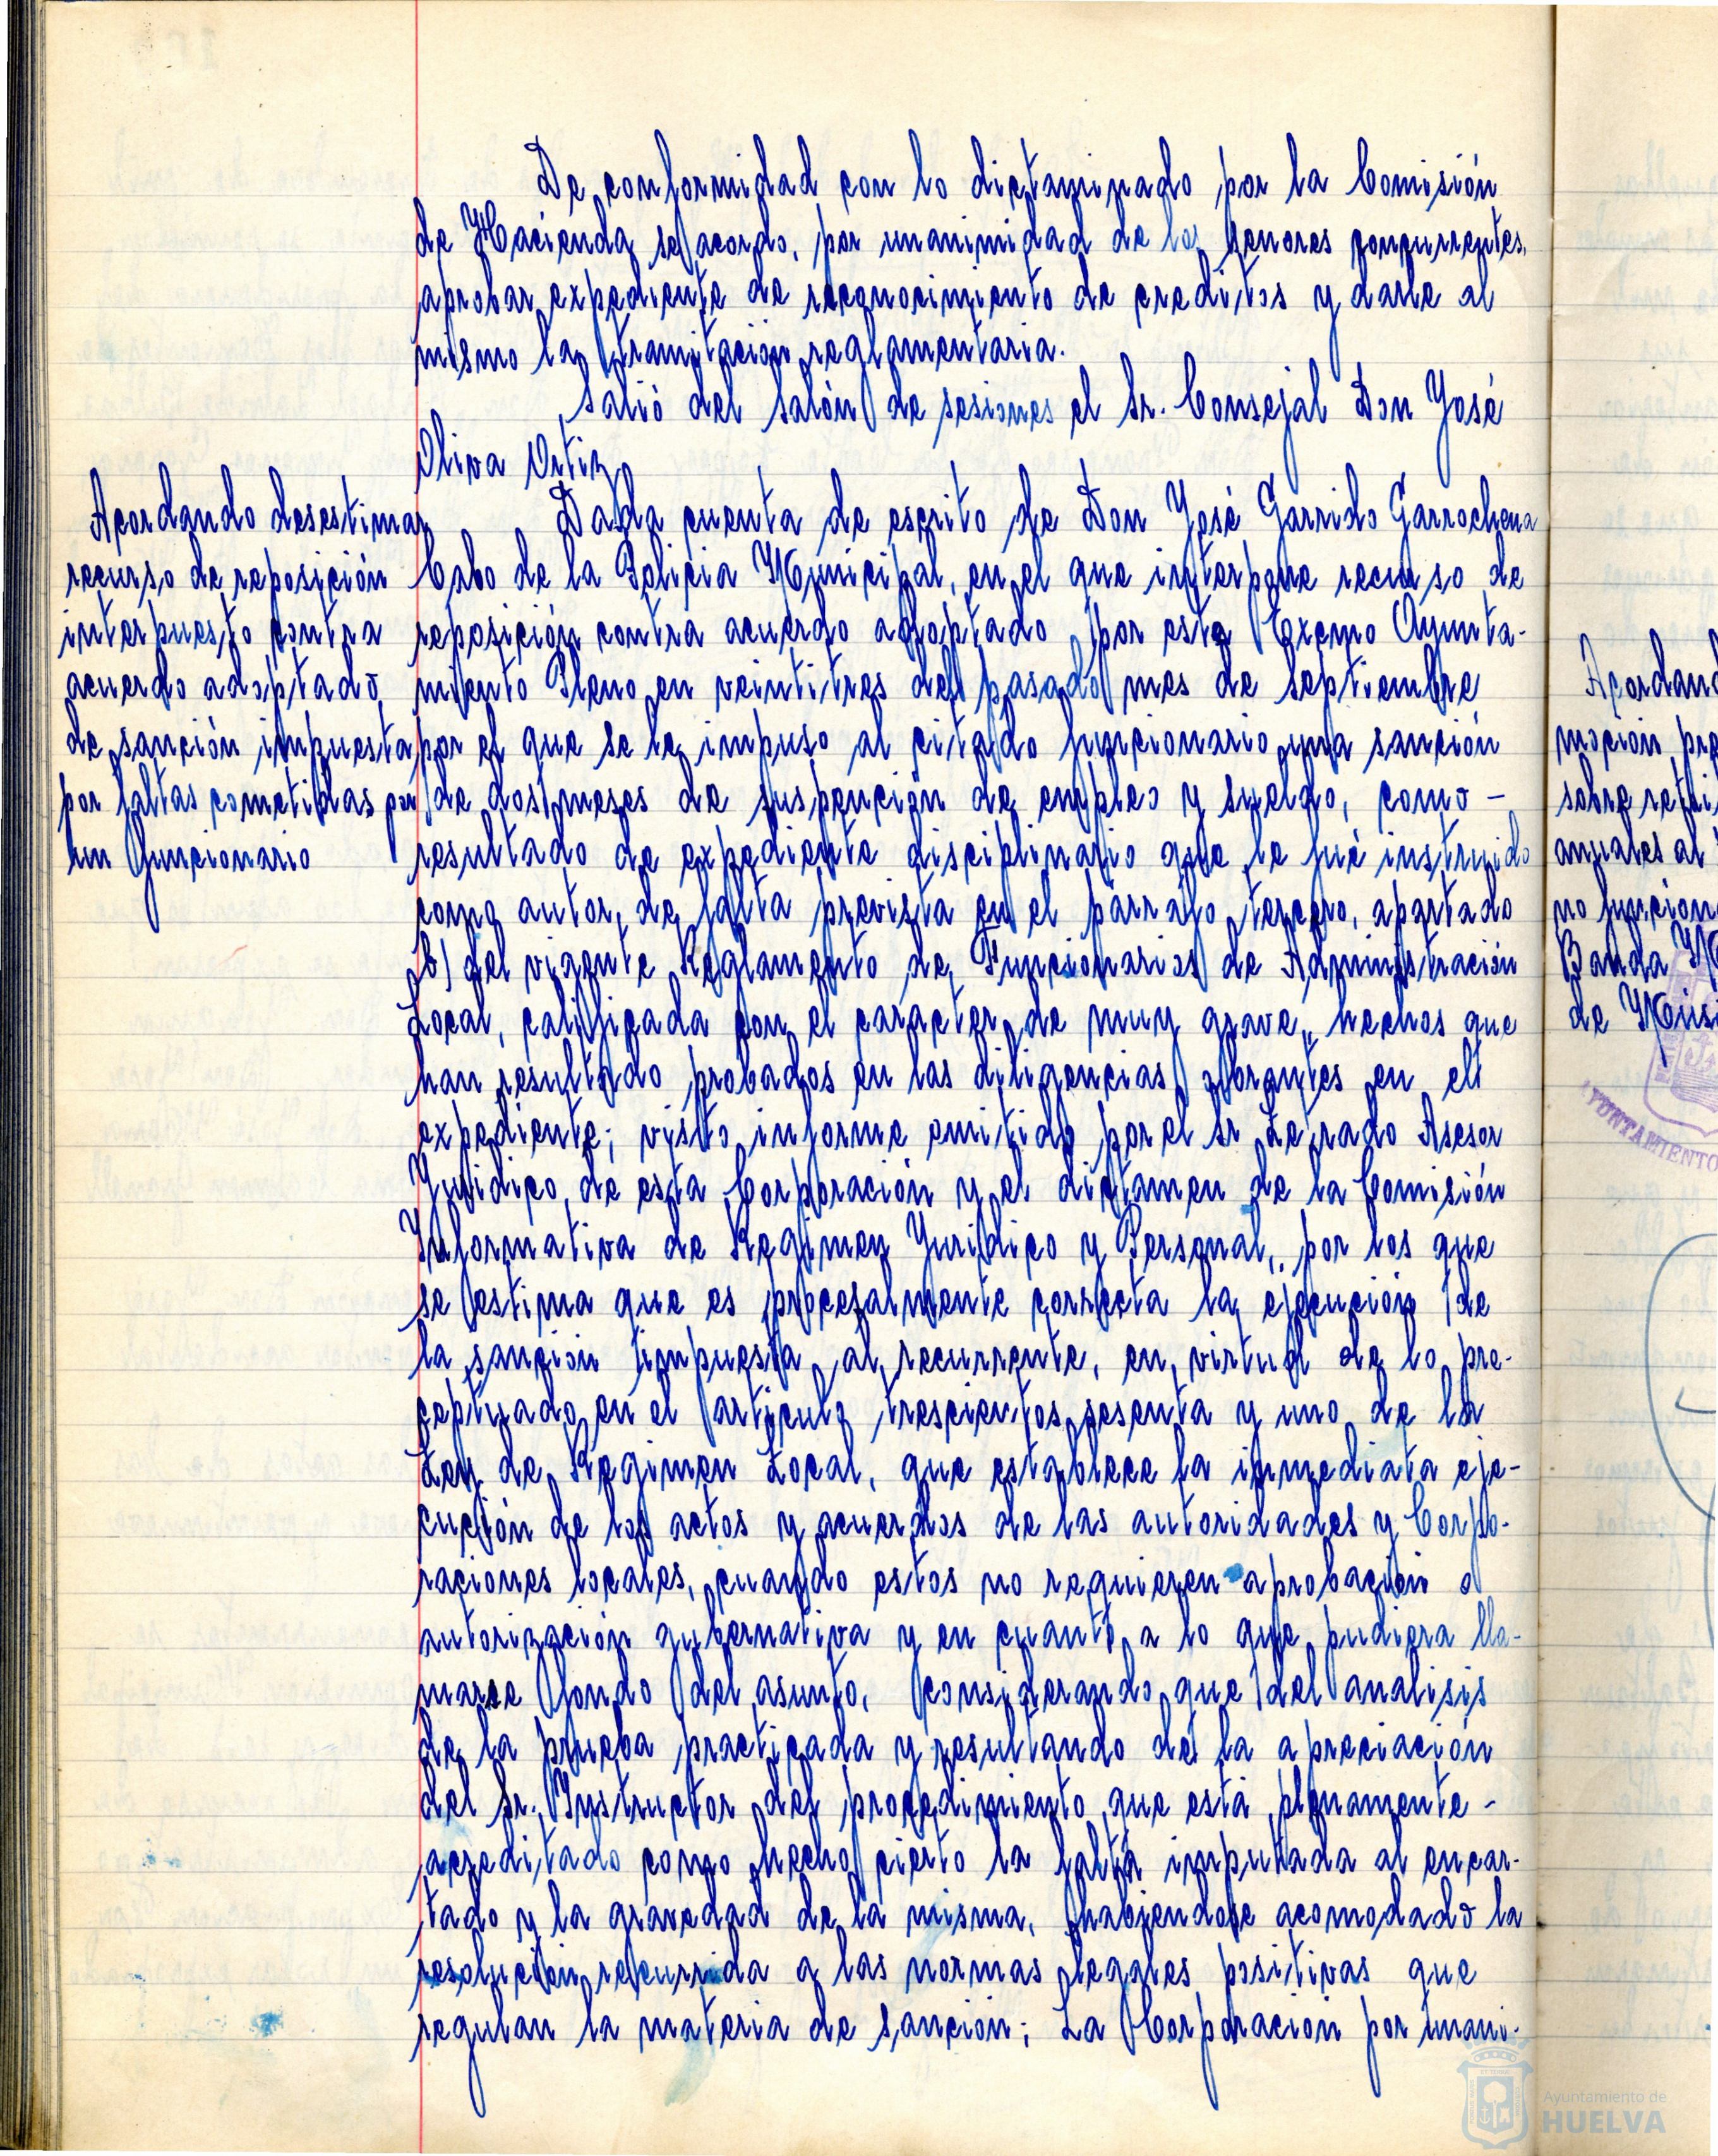 De conformidad con lo dictaminado por la Comisión
de Hacienda se acordo, por unanimidad de los señores concurrentes,
aprobar expediente de reconocimiento de creditos y darle al
mismo la tramitación reglamentaria.
Salió del salón de sesiones el Sr. Consejal Don José
Oliva Ortiz
Acordando desestimar
recurso de reposición
interpuesto contra
acuerdo adoptado
de sanción impuesta
por faltas cometidas por
un funcionario
Dada cuenta de escrito de Don José Garrido Garrochena
Cabo de la Policia Municipal, en el que interpone recurso de
reposición contra acuerdo adoptado por este Excmo Ayunta-
miento Pleno en veintitres del pasado mes de Septiembre
por el que se le impuso al citado funcionario una sanción
de dos meses de suspención de empleo y sueldo, como -
resultado de expediente disciplinario que le fué instruido
como autor, de falta prevista en el parrafo tercero, apartado
b) del vigente Reglamento de Funcionarios de Administración
Local, calificada con el caracter de muy grave, hechos que
han resultado probados en las diligencias obrantes en el
expediente; visto informe emitido por el Sr Letrado Asesor
Juridico de esta Corporación y el dictamen de la Comisión
Informativa de Regimen Juridico y Personal, por los que
se estima que es procesalmente correcta la ejecución de
la sanción impuesta al recurrente, en virtud de lo pre-
ceptuado en el articulo trescientos sesenta y uno de la
Ley de Regimen Local, que establece la inmediata eje-
cución de los actos y acuerdos de las autoridades y Corpo-
raciones locales, cuando estos no requieren aprobación o
autorización gubernativa y en cuanto a lo que pudiera lla-
marse fondo del asunto, considerando que del analisis
de la prueba practicada y resultando de la apreciación
del Sr. Instructor del procedimiento que está plenamente -
acreditado como hecho cierto la falta imputada al encar-
tado y la gravedad de la misma, habiendose acomodado la
resolución recurrida a las normas legales positivas que
regulan la materia de sanción; La Corporación por unani-
Acordand
moción pre
sobre retri
anuales al
no funcion
Banda M
de Musi
AYUNTAMIENTO
Ayuntamiento de
HUELVA